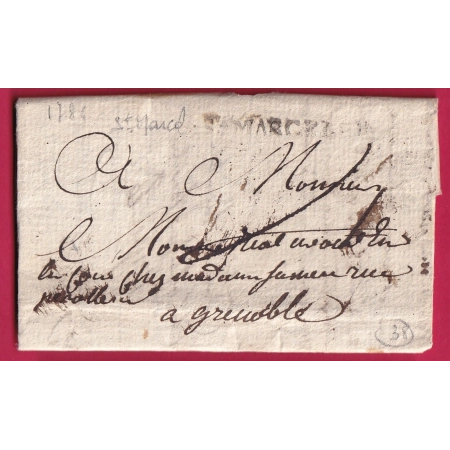 1785 St Marcel St MARCELLIN
A Monsieur
Monsieur avocat En
la cour chez madame rue
a grenoble
38